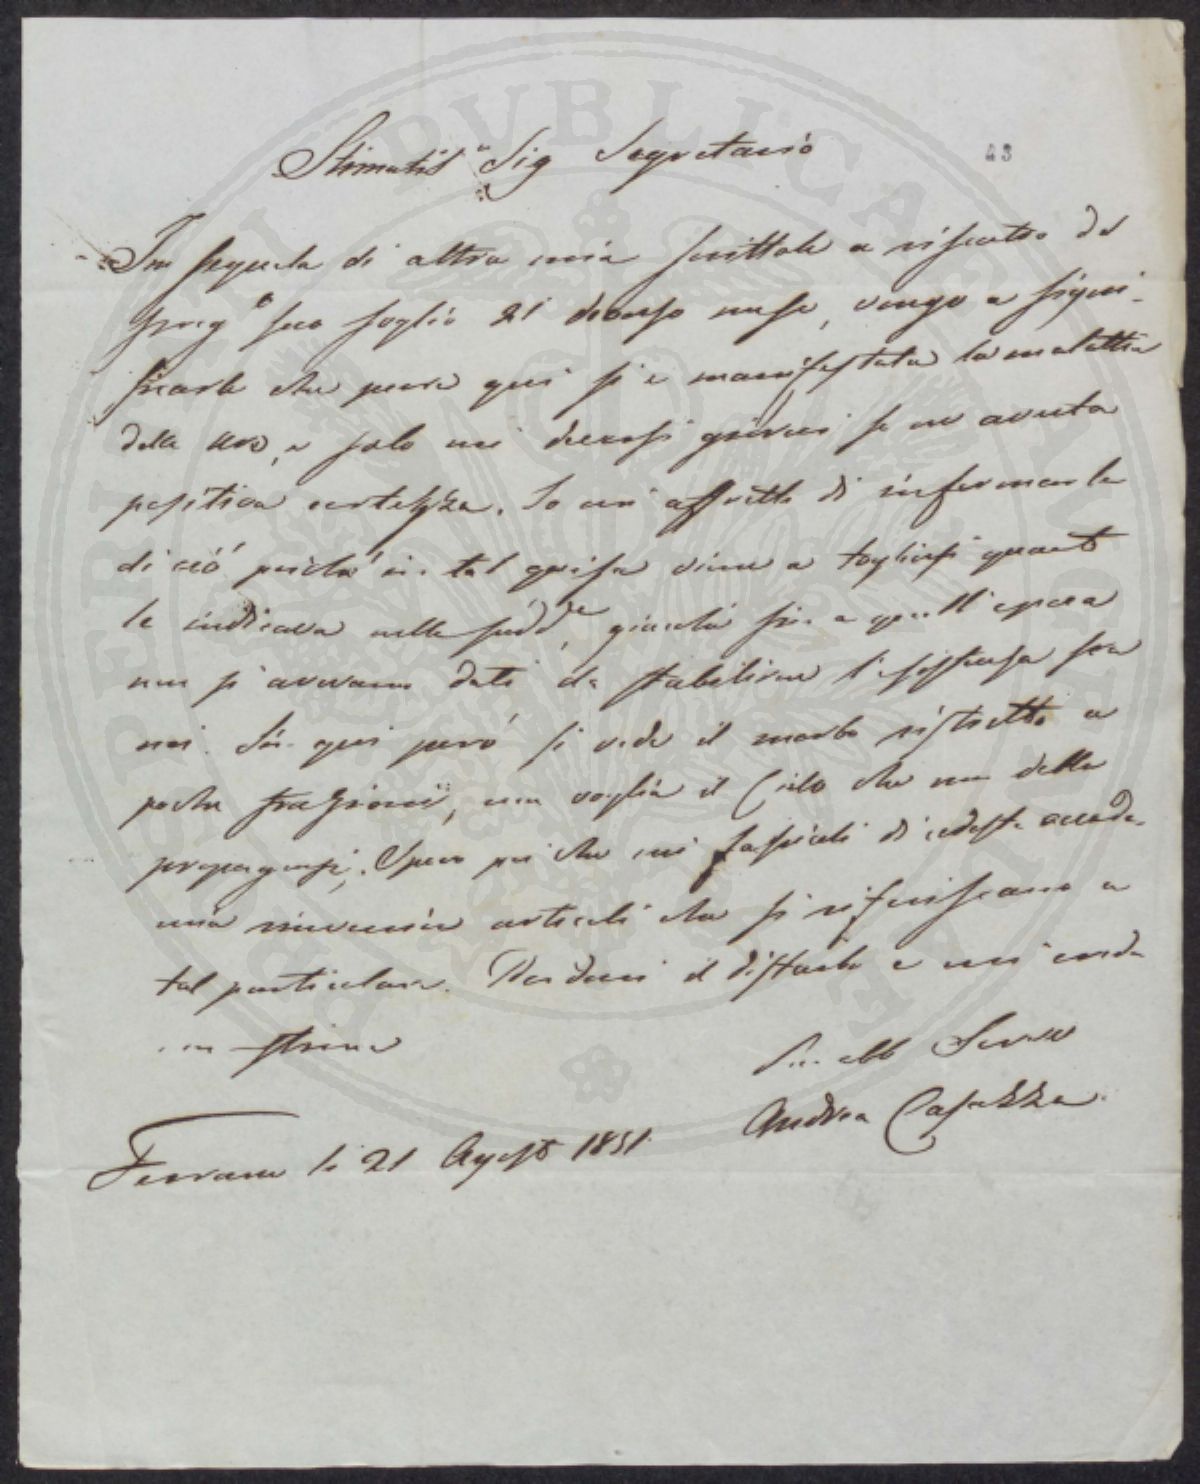 Stimatis.o Sig Segretario
43
In seguela di altra mia scrittale a riscontro del
preg.o suo foglio 21 decorso mese, vengo a signi-
ficarle che pure qui si è manifestata la malattia
della uva, e solo nei decorsi giorni se ne avuta
positiva certezza. Io mi affretto di informarla
di ciò perchè in tal guisa viene a togliersi quanto
le indicava nella sudd.e, giacchè sin a quell'epoca
non si avevano dati da stabilirne l'esistenza fra
noi. Sin qui però si vede il morbo ristretto a
poche frazioni, ma voglia il Cielo che non debba
propagarsi. Spero poi che nei fascicoli di codesta accade-
mia rinvenire articoli che si riferiscano a
tal particolare. Perdoni il disturbo e mi creda
con stima
Suo obb Servo
Andrea Casazza
Ferrara li 21 Agosto 1851